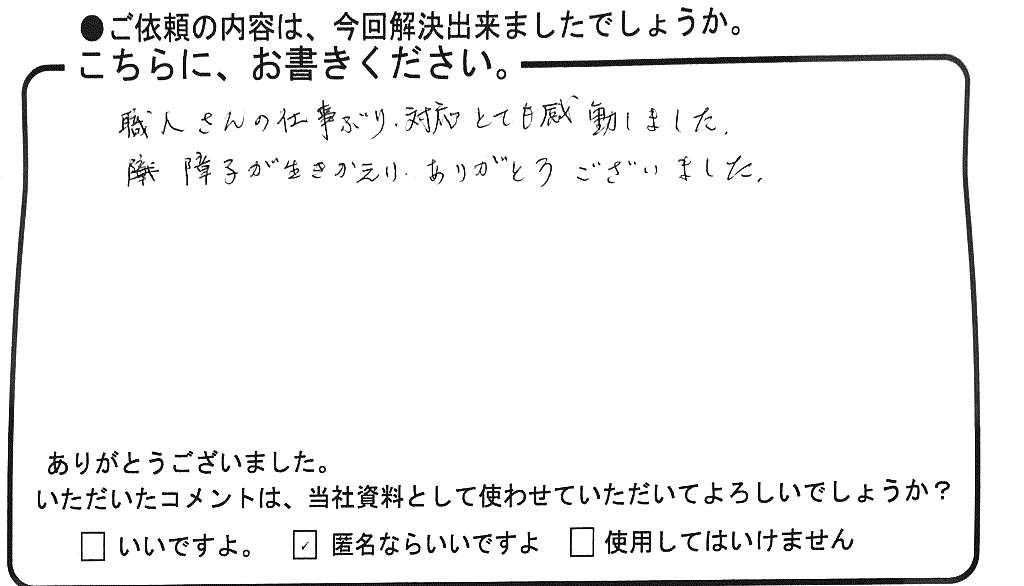 ●ご依頼の内容は、今回解決出来ましたでしょうか。
こちらに、お書きください。
職人さんの仕事ぶり、対応とても感動しました。
障子が生きかえり、ありがとうございました。
ありがとうございました。
いただいたコメントは、当社資料として使わせていただいてよろしいでしょうか?
□ いいですよ。 ☑ 匿名ならいいですよ □ 使用してはいけません